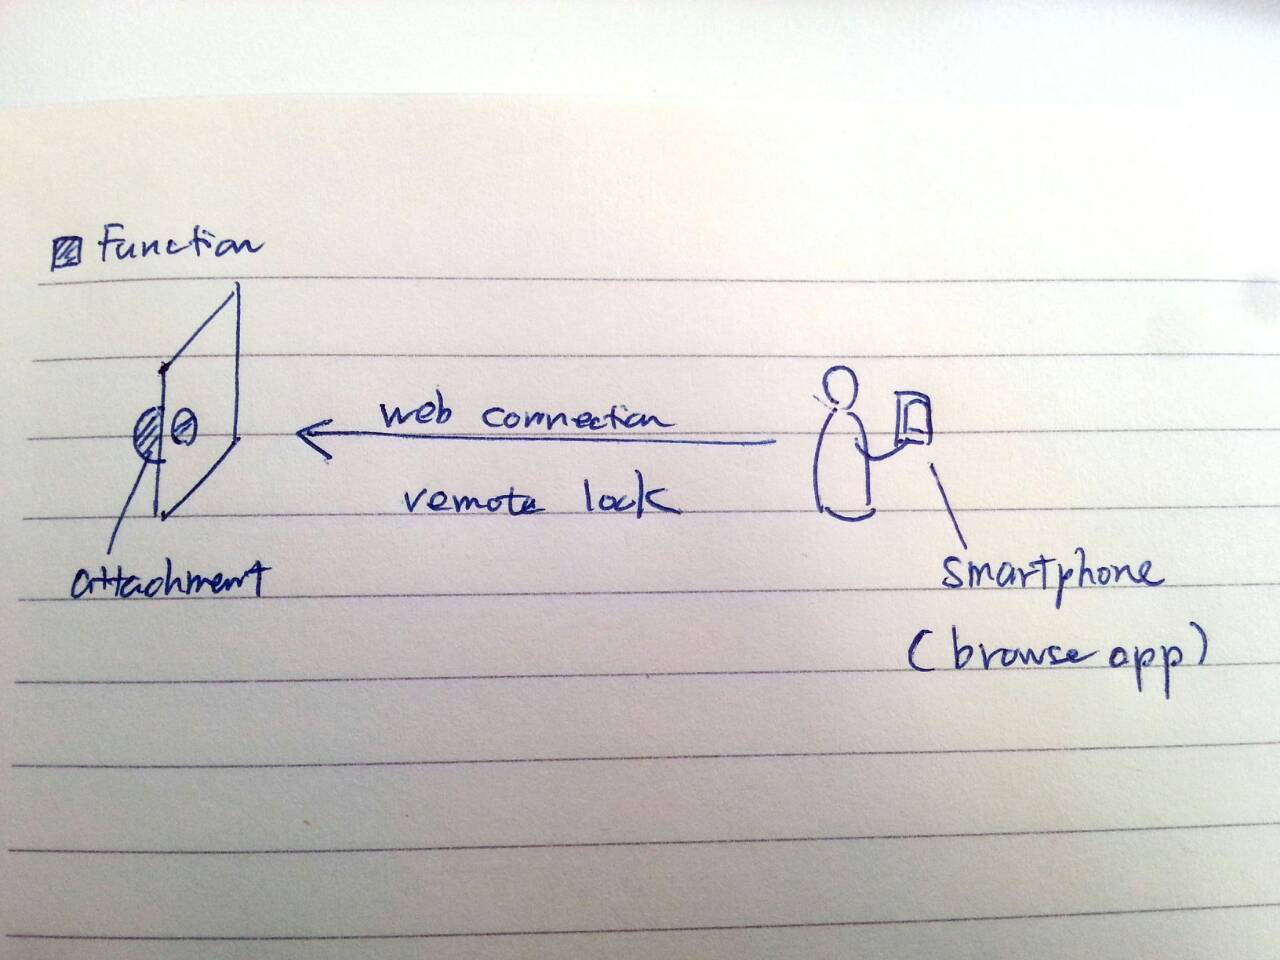 Function
web connection
remote lock
attachment
smartphone
(browse app)